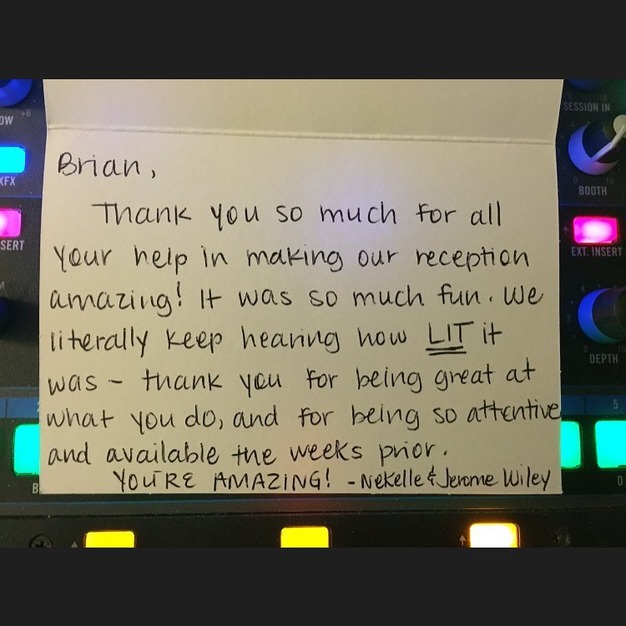 Brian,
Thank you so much for all
your help in making our reception
amazing! It was so much fun. We
literally keep hearing how LIT it
was - thank you for being great at
what you do, and for being so attentive
and available the weeks prior.
YOU'RE AMAZING! - Nekelle & Jerome Wiley
SESSION IN
BOOTH
EXT. INSERT
DEPTH